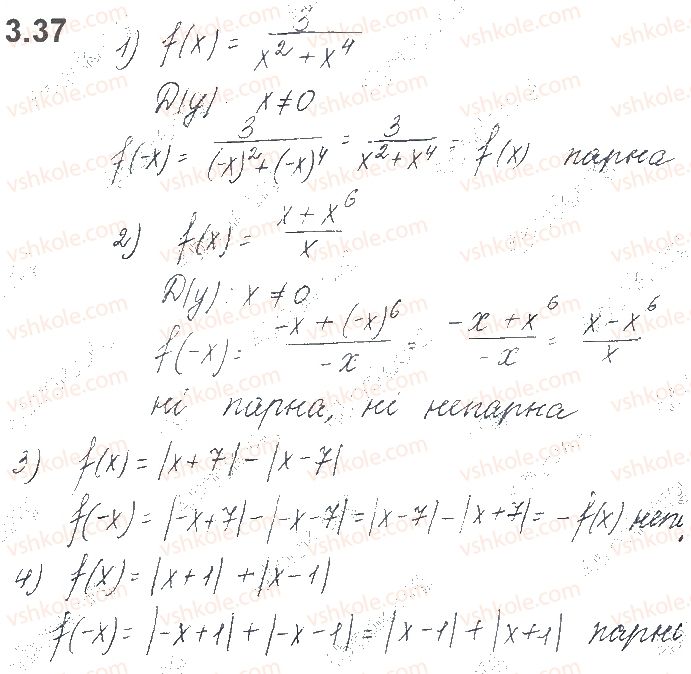 3.37
1) f(x) = 3/(x² + x⁴)
D(y): x ≠ 0
f(-x) = 3/((-x)² + (-x)⁴) = 3/(x² + x⁴) = f(x) парна
2) f(x) = (x + x⁶)/x
D(y): x ≠ 0
f(-x) = (-x + (-x)⁶)/(-x) = (-x + x⁶)/(-x) = (x - x⁶)/x
ні парна, ні непарна
3) f(x) = |x + 7| - |x - 7|
f(-x) = |-x + 7| - |-x - 7| = |x - 7| - |x + 7| = -f(x) неп.
4) f(x) = |x + 1| + |x - 1|
f(-x) = |-x + 1| + |-x - 1| = |x - 1| + |x + 1| парн